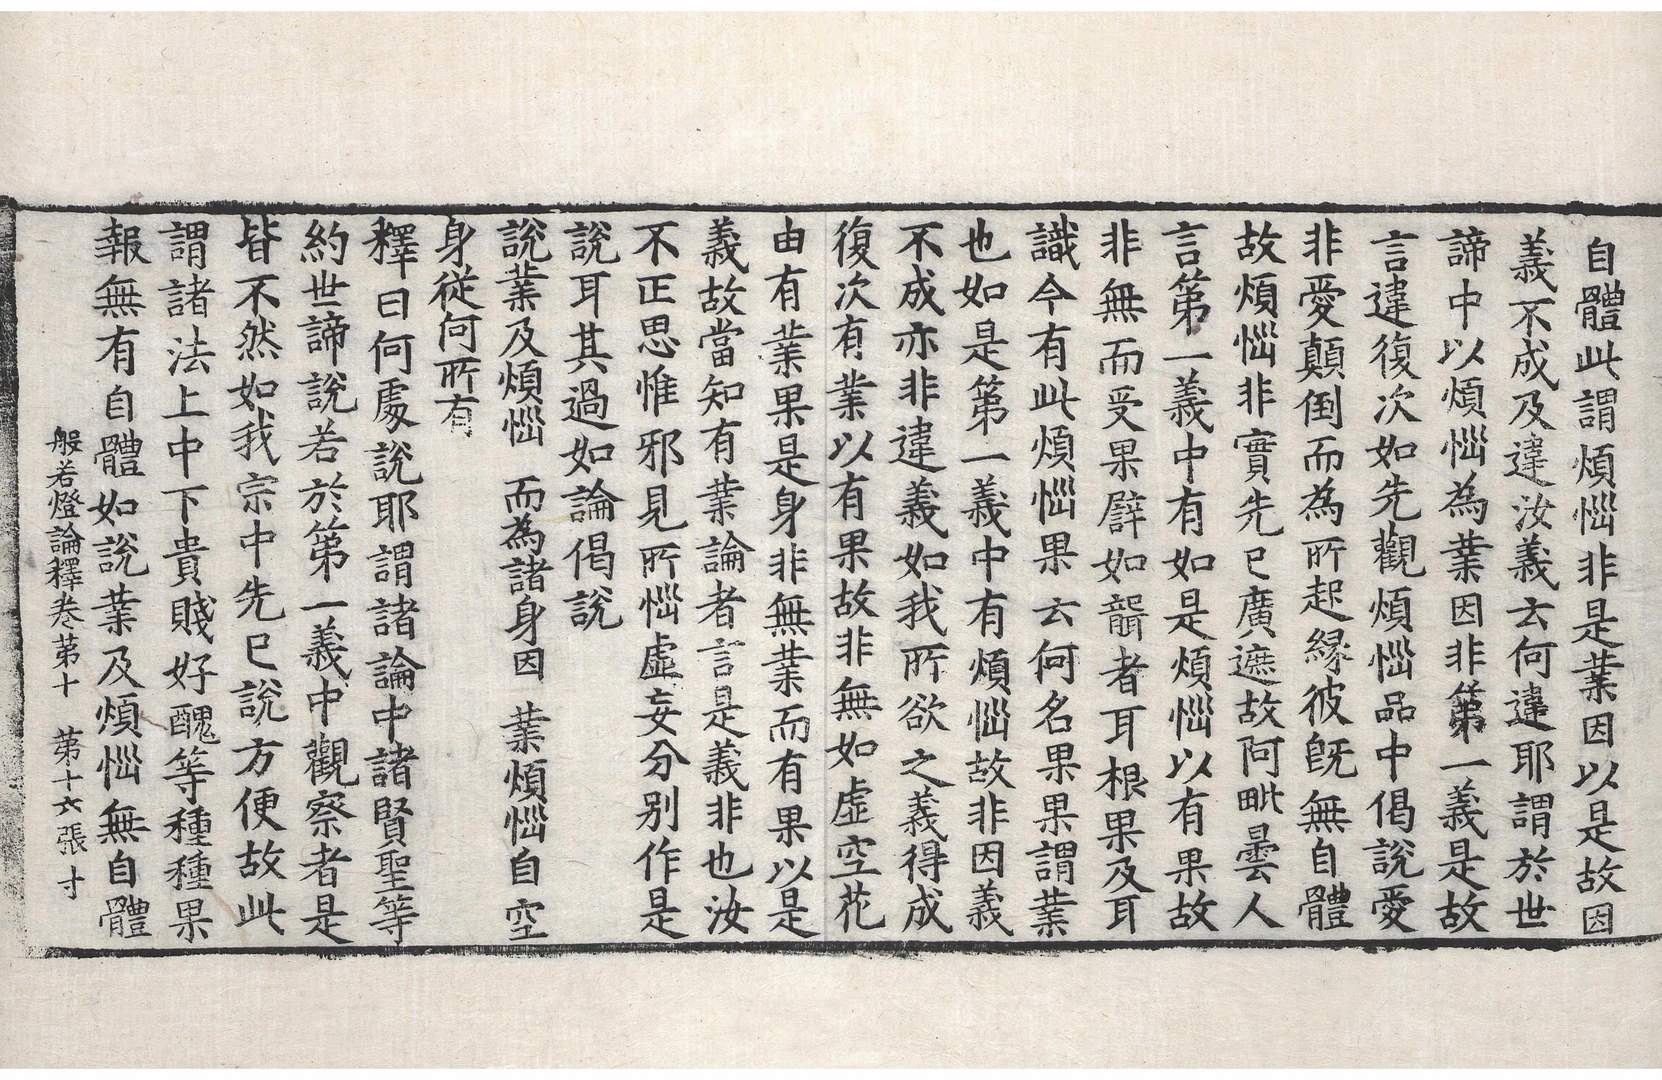 自體此謂煩惱非是業因以是故因
義不成及違汝義云何違耶謂於世
諦中以煩惱為業因非第一義是故
言違復次如先觀煩惱品中偈說愛
非愛顛倒而為所起緣彼旣無自體
故煩惱非實先已廣遮故阿毗曇人
言第一義中有如是煩惱以有果故
非無而受果譬如聾者耳根果及耳
識今有此煩惱果云何名果果謂業
也如是第一義中有煩惱故非因義
不成亦非違義如我所欲之義得成
復次有業以有果故非無如虛空花
由有業果是身非無業而有果以是
義故當知有業論者言是義非也汝
不正思惟邪見所惱虛妄分別作是
說耳其過如論偈說
說業及煩惱 而為諸身因 業煩惱自空
身從何所有
釋曰何處說耶謂諸論中諸賢聖等
約世諦說若於第一義中觀察者是
皆不然如我宗中先已說方便故此
謂諸法上中下貴賤好醜等種種果
報無有自體如說業及煩惱無自體
般若燈論釋卷第十 第十六張 寸